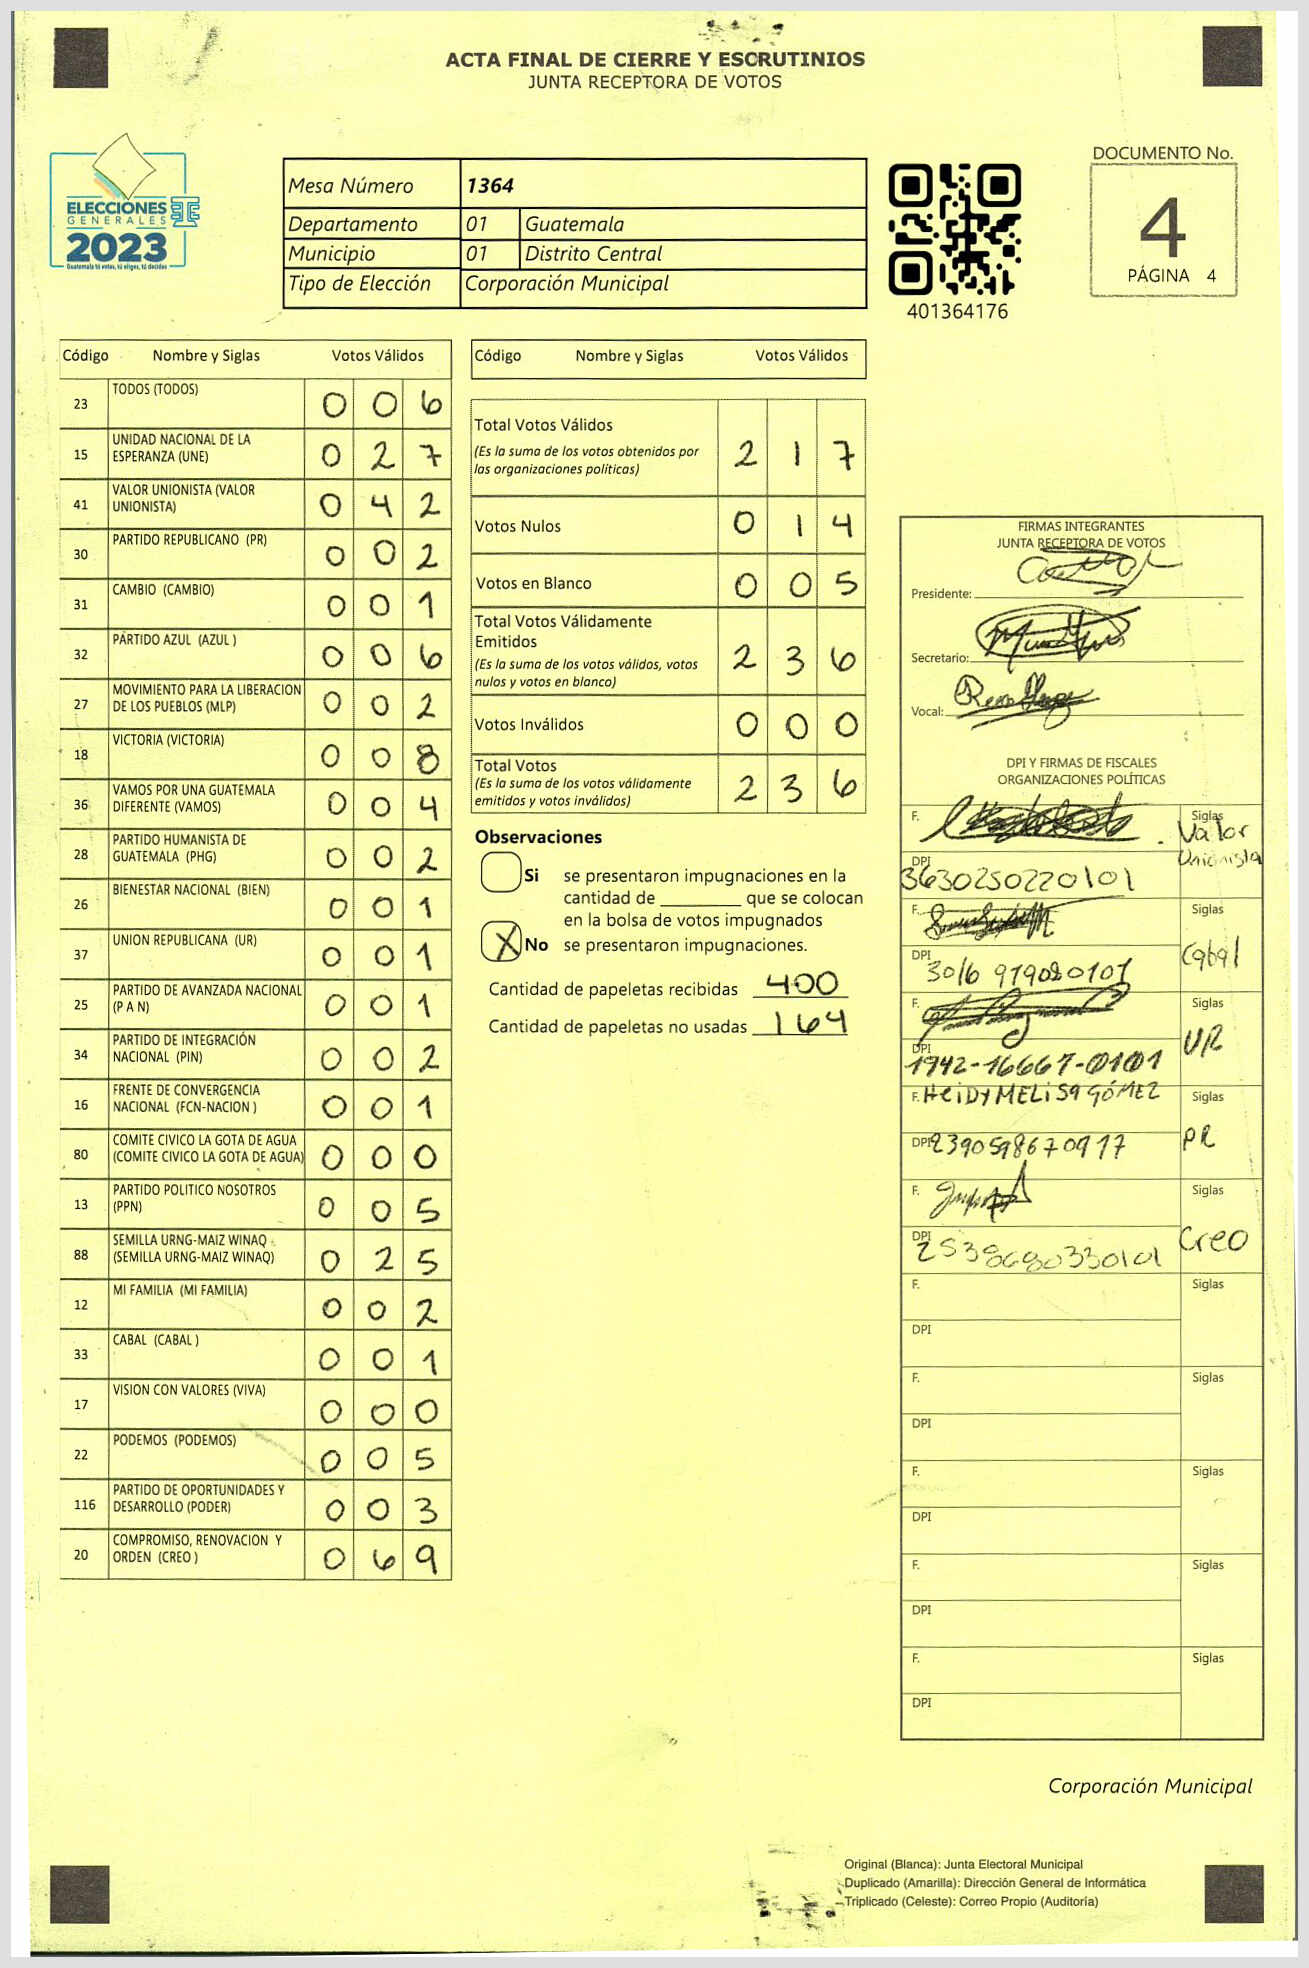 ACTA FINAL DE CIERRE Y ESCRUTINIOS
JUNTA RECEPTORA DE VOTOS
ELECCIONES
GENERALES
2023
Guatemala tú votas, tú eliges, tú decides
Mesa Número 1364
Departamento 01 Guatemala
Municipio 01 Distrito Central
Tipo de Elección Corporación Municipal
401364176
DOCUMENTO No.
4
PÁGINA 4
Código Nombre y Siglas Votos Válidos
23 TODOS (TODOS) 0 0 6
15 UNIDAD NACIONAL DE LA ESPERANZA (UNE) 0 2 7
41 VALOR UNIONISTA (VALOR UNIONISTA) 0 4 2
30 PARTIDO REPUBLICANO (PR) 0 0 2
31 CAMBIO (CAMBIO) 0 0 1
32 PARTIDO AZUL (AZUL ) 0 0 6
27 MOVIMIENTO PARA LA LIBERACION DE LOS PUEBLOS (MLP) 0 0 2
18 VICTORIA (VICTORIA) 0 0 8
36 VAMOS POR UNA GUATEMALA DIFERENTE (VAMOS) 0 0 4
28 PARTIDO HUMANISTA DE GUATEMALA (PHG) 0 0 2
26 BIENESTAR NACIONAL (BIEN) 0 0 1
37 UNION REPUBLICANA (UR) 0 0 1
25 PARTIDO DE AVANZADA NACIONAL (P A N) 0 0 1
34 PARTIDO DE INTEGRACIÓN NACIONAL (PIN) 0 0 2
16 FRENTE DE CONVERGENCIA NACIONAL (FCN-NACION ) 0 0 1
80 COMITE CIVICO LA GOTA DE AGUA (COMITE CIVICO LA GOTA DE AGUA) 0 0 0
13 PARTIDO POLITICO NOSOTROS (PPN) 0 0 5
88 SEMILLA URNG-MAIZ WINAQ (SEMILLA URNG-MAIZ WINAQ) 0 2 5
12 MI FAMILIA (MI FAMILIA) 0 0 2
33 CABAL (CABAL ) 0 0 1
17 VISION CON VALORES (VIVA) 0 0 0
22 PODEMOS (PODEMOS) 0 0 5
116 PARTIDO DE OPORTUNIDADES Y DESARROLLO (PODER) 0 0 3
20 COMPROMISO, RENOVACION Y ORDEN (CREO ) 0 6 9
Código Nombre y Siglas Votos Válidos
Total Votos Válidos 2 1 7
(Es la suma de los votos obtenidos por
las organizaciones políticas)
Votos Nulos 0 1 4
Votos en Blanco 0 0 5
Total Votos Válidamente
Emitidos 2 3 6
(Es la suma de los votos válidos, votos
nulos y votos en blanco)
Votos Inválidos 0 0 0
Total Votos 2 3 6
(Es la suma de los votos válidamente
emitidos y votos inválidos)
Observaciones
Si se presentaron impugnaciones en la
cantidad de ________ que se colocan
en la bolsa de votos impugnados
X No se presentaron impugnaciones.
Cantidad de papeletas recibidas 400
Cantidad de papeletas no usadas 164
FIRMAS INTEGRANTES
JUNTA RECEPTORA DE VOTOS
Presidente:
Secretario:
Vocal:
DPI Y FIRMAS DE FISCALES
ORGANIZACIONES POLÍTICAS
F. Siglas Valor Unionista
DPI 3630250220101
F. Siglas Cabal
DPI 3016 979080101
F. Siglas UR
DPI 1942-16667-0101
F. HEIDY MELISA GÓMEZ Siglas PR
DPI 2390598670917
F. Siglas Creo
DPI 2538680330101
F. Siglas
DPI
F. Siglas
DPI
F. Siglas
DPI
F. Siglas
DPI
F. Siglas
DPI
Corporación Municipal
Original (Blanca): Junta Electoral Municipal
Duplicado (Amarilla): Dirección General de Informática
Triplicado (Celeste): Correo Propio (Auditoría)